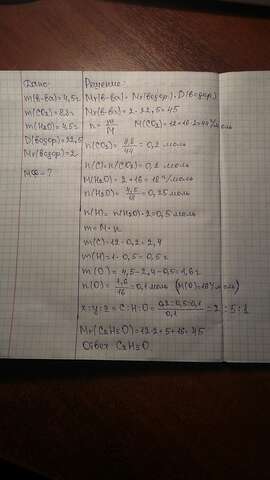 Дано:
m(в-ва)=4,5г
m(CO₂)=8,8г
m(H₂O)=4,5г
D(водор)=22,5
Mr(водор)=2
МФ-?
Решение:
Mr(в-ва)=Mr(водор)·D(водор)
Mr(в-ва)=2·22,5=45
n=m/M M(CO₂)=12+16·2=44г/моль
n(CO₂)=8,8/44=0,2 моль
n(C)=n(CO₂)=0,2 моль
M(H₂O)=2+16=18г/моль
n(H₂O)=4,5/18=0,25моль
n(H)=n(H₂O)·2=0,5моль
m=M·n
m(C)=12·0,2=2,4
m(H)=1·0,5=0,5г
m(O)=4,5-2,4-0,5=1,6г
n(O)=1,6/16=0,1моль (M(O)=16г/моль)
x:y:z=C:H:O=0,2:0,5:0,1/0,1=2:5:1
Mr(C₂H₅O)=12·2+5+16=45
Ответ C₂H₅O